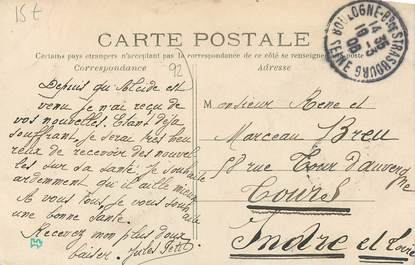 15t
CARTE POSTALE
Certains pays étrangers n'acceptent pas la correspondance de ce côté se renseigner
Correspondance
Adresse
92
BOULOGNE-Rue STRASBOURG
Depuis qu'Alcide est
venu je n'ai reçu de
vos nouvelles. Etant déjà
souffrant je serai très heu
reux de recevoir des nouvel
les sur sa santé. Je souhaite
ardemment qu'il aille mieux
A vous tous je vous souh
aite
une bonne santé.
Recevez mon plus doux
baiser. Jules Petit
Monsieur Rene et
Marceau Breu
58 rue Tour d'auvergne
Tours
Indre et Loire